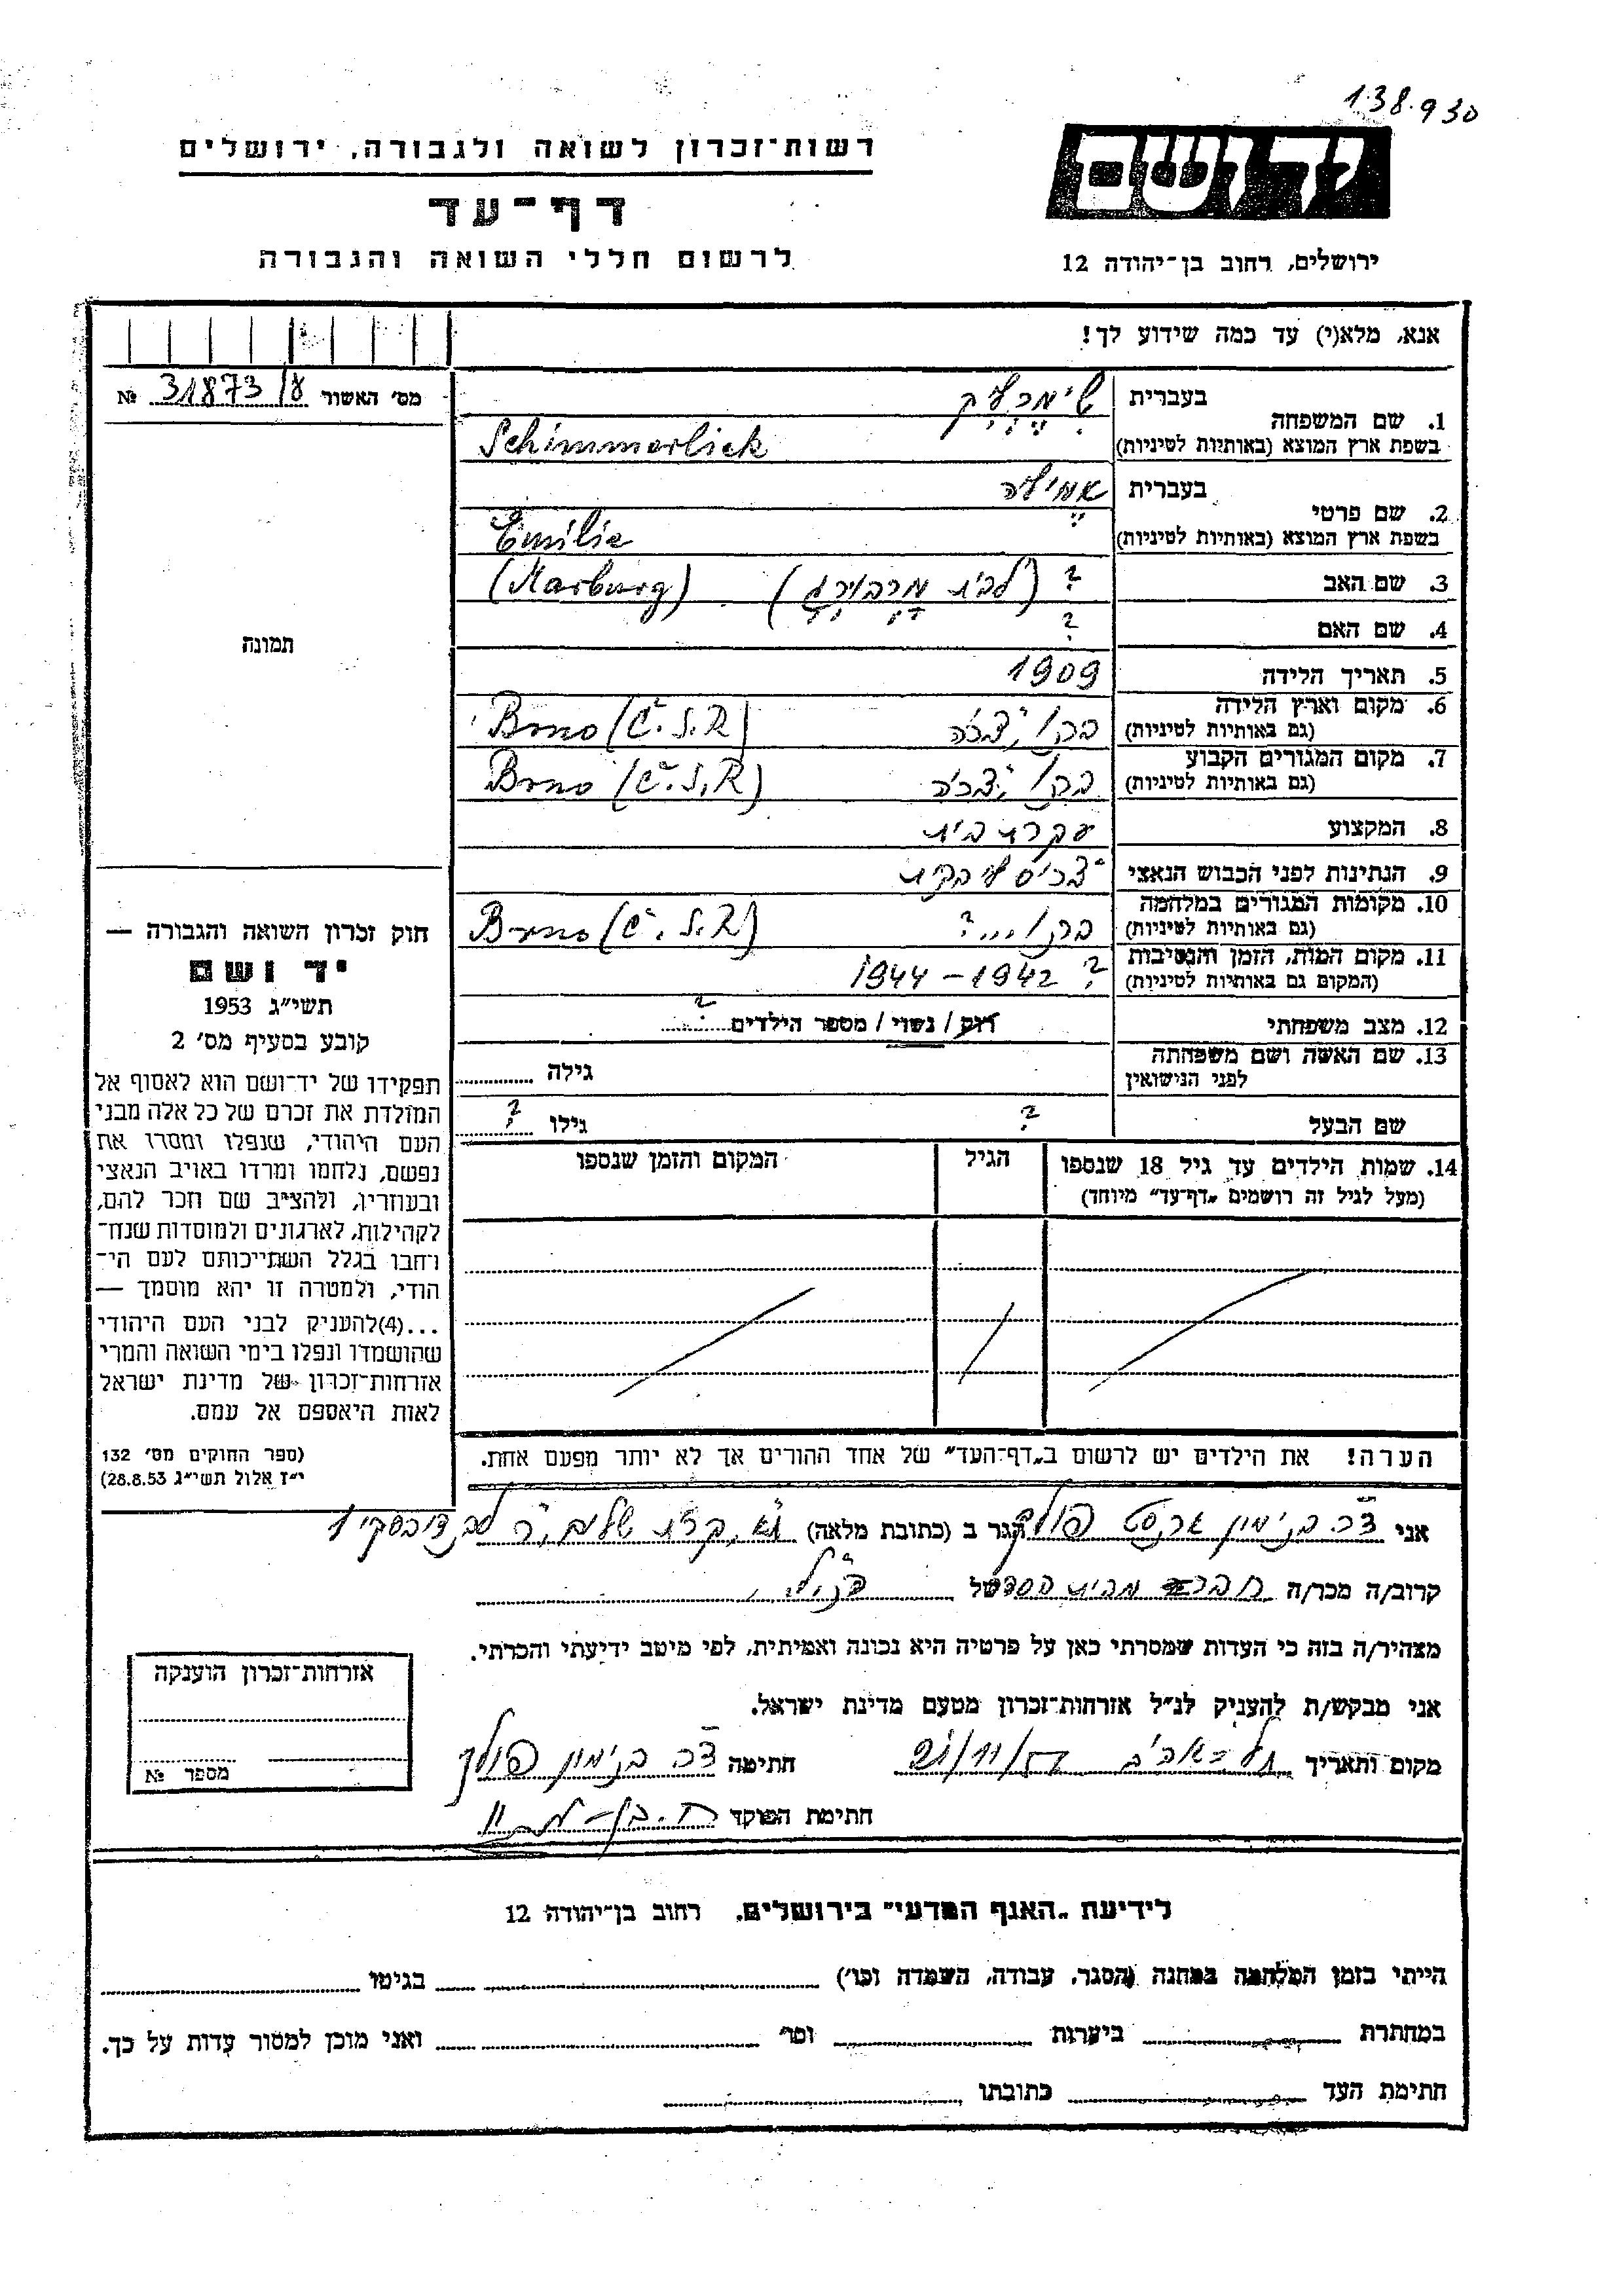 138.930
יד ושם
רשות־זכרון לשואה ולגבורה, ירושלים
דף־עד
לרשום חללי השואה והגבורה
ירושלים, רחוב בן־יהודה 12
אנא, מלא(י) עד כמה שידוע לך!
מס׳ האשור 31873/ № 
1. שם המשפחה
בעברית שימרליק
בשפת ארץ המוצא (באותיות לטיניות) Schimmerlick
2. שם פרטי
בעברית אמיליה
בשפת ארץ המוצא (באותיות לטיניות) Emilie
3. שם האב ? (לבית מרבורג) (Marburg)
4. שם האם ?
5. תאריך הלידה 1909
6. מקום וארץ הלידה
(גם באותיות לטיניות) ברנו, צ׳כיה Brno (Č.S.R)
7. מקום המגורים הקבוע
(גם באותיות לטיניות) ברנו, צ׳כיה Brno (Č.S.R)
8. המקצוע עקרת בית
9. הנתינות לפני הכבוש הנאצי
10. מקומות המגורים במלחמה
(גם באותיות לטיניות) ברנו...? Brno (Č.S.R)
11. מקום המות, הזמן והנסיבות
(המקום גם באותיות לטיניות) ? 1942–1944
12. מצב משפחתי רוק / נשוי / מספר הילדים ?
13. שם האשה ושם משפחתה
לפני הנישואין
גילה
שם הבעל ? גילו ?
14. שמות הילדים עד גיל 18 שנספו
(מעל לגיל זה רושמים „דף־עד״ מיוחד)
הגיל
המקום והזמן שנספו
הערה! את הילדים יש לרשום ב„דף־העד״ של אחד ההורים אך לא יותר מפעם אחת.
תמונה
חוק זכרון השואה והגבורה —
יד ושם
תשי״ג 1953
קובע בסעיף מס׳ 2
תפקידו של יד־ושם הוא לאסוף אל
המולדת את זכרם של כל אלה מבני
העם היהודי, שנפלו ומסרו את
נפשם, נלחמו ומרדו באויב הנאצי
ובעוזריו, ולהציב שם וזכר להם,
לקהילות, לארגונים ולמוסדות שנח־
רחבו בגלל השתייכותם לעם הי־
הודי, ולמטרה זו יהא מוסמך —
...(4)להעניק לבני העם היהודי
שהושמדו ונפלו בימי השואה והמרי
אזרחות־זכרון של מדינת ישראל
לאות היאספם אל עמם.
(ספר החוקים מס׳ 132
י״ז אלול תשי״ג 28.8.53)
אני בנימין ארנסט פולק הגר ב (כתובת מלאה) ת״א, קרית שלום,
קרוב/ה מכר/ה של הנ״ל
מצהיר/ה בזה כי העדות שמסרתי כאן על פרטיה היא נכונה ואמיתית, לפי מיטב ידיעתי והכרתי.
אני מבקש/ת להעניק לנ״ל אזרחות־זכרון מטעם מדינת ישראל.
מקום ותאריך תל־אביב חתימה בנימין פולק
חתימת הפוקד
אזרחות־זכרון הוענקה
מספר №
לידיעת „האגף המדעי״ בירושלים, רחוב בן־יהודה 12
הייתי בזמן המלחמה במחנה (הסגר, עבודה, השמדה וכו׳) בגיטו
במחתרת ביערות וכו׳ ואני מוכן למסור עדות על כך.
חתימת העד כתובתו